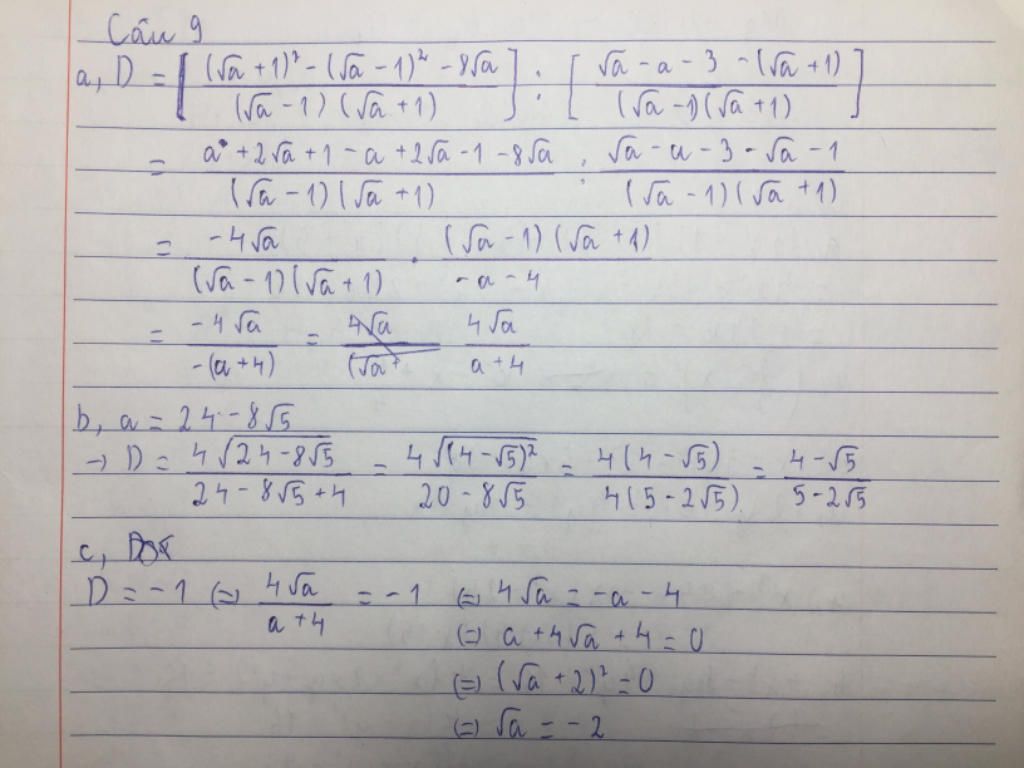 Câu 9
a, D = [ ((√a + 1)² - (√a - 1)² - 8√a) / ((√a - 1)(√a + 1)) ] : [ (√a - a - 3 - (√a + 1)) / ((√a - 1)(√a + 1)) ]
= (a + 2√a + 1 - a + 2√a - 1 - 8√a) / ((√a - 1)(√a + 1)) : (√a - a - 3 - √a - 1) / ((√a - 1)(√a + 1))
= (-4√a) / ((√a - 1)(√a + 1)) . ((√a - 1)(√a + 1)) / (-a - 4)
= (-4√a) / (-(a + 4)) = (4√a) / (a + 4)
b, a = 24 - 8√5
→ D = (4√(24 - 8√5)) / (24 - 8√5 + 4) = (4√((4 - √5)²)) / (20 - 8√5) = (4(4 - √5)) / (4(5 - 2√5)) = (4 - √5) / (5 - 2√5)
c,
D = -1 (=) (4√a) / (a + 4) = -1 (=) 4√a = -a - 4
(=) a + 4√a + 4 = 0
(=) (√a + 2)² = 0
(=) √a = -2